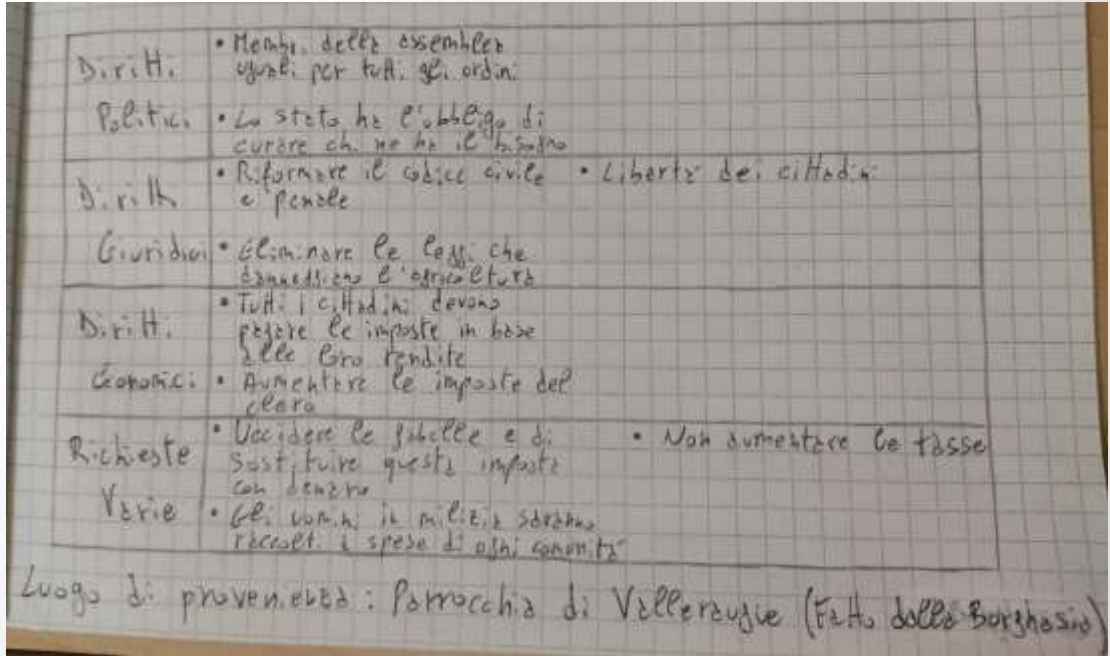 Diritti
Politici
• Membri della assemblea
uguali per tutti gli ordini
• Lo stato ha l'obbligo di
curare chi ne ha il bisogno
Diritti
Giuridici
• Riformare il codice civile
e penale
• Libertà dei cittadini
• Eliminare le leggi che
danneggiano l'agricoltura
Diritti
Economici
• Tutti i cittadini devono
pagare le imposte in base
alle loro rendite
• Aumentare le imposte del
clero
Richieste
Varie
• Uccidere le gabelle e di
sostituire questa imposta
con denaro
• Non aumentare le tasse
• Gli uomini in milizia saranno
raccolti a spese di ogni comunità
Luogo di provenienza: Parrocchia di Valleraugue (Fatto dalla Borghesia)